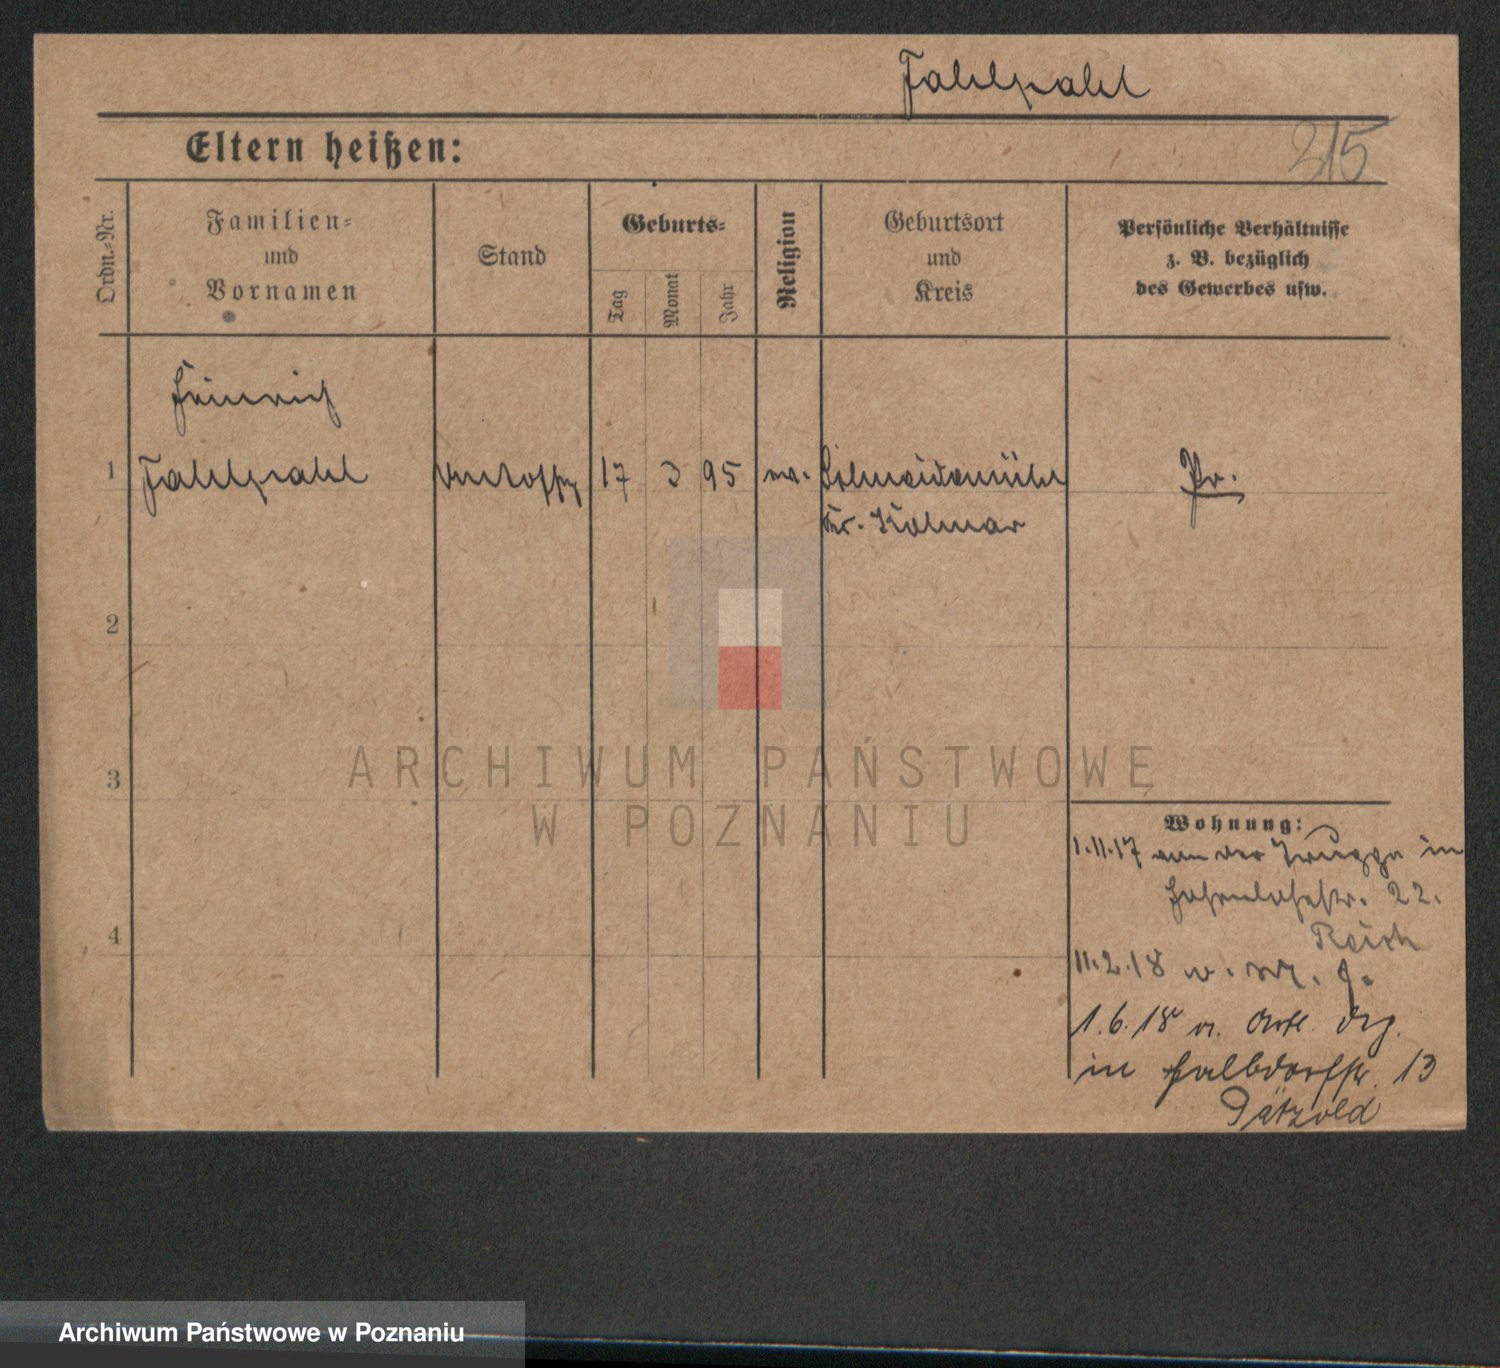 Fahlpahl
Eltern heißen:
215
Ordn.-Nr.
Familien-
und
Vornamen
Stand
Geburts-
Tag
Monat
Jahr
Religion
Geburtsort
und
Kreis
Persönliche Verhältnisse
z. B. bezüglich
des Gewerbes usw.
Heinrich
1 Fahlpahl 17 3 95 ev. Schneidemühl Pr.
Kr. Kolmar
2
3
4
ARCHIWUM PAŃSTWOWE
W POZNANIU
Wohnung:
1.11.17 von der Truppe in
22.
11.2.18
1.6.18 v.
in Halbdorfstr. 13
Pätzold
Archiwum Państwowe w Poznaniu